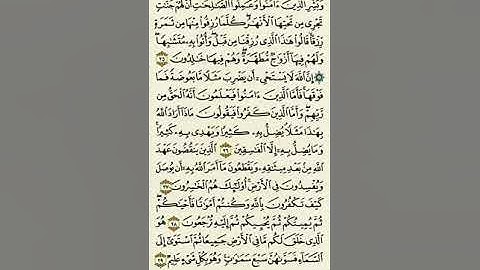 وَبَشِّرِ الَّذِينَ ءَامَنُوا وَعَمِلُوا الصَّالِحَاتِ أَنَّ لَهُمْ جَنَّاتٍ
تَجْرِي مِن تَحْتِهَا الْأَنْهَارُ كُلَّمَا رُزِقُوا مِنْهَا مِن ثَمَرَةٍ
رِّزْقًا قَالُوا هَٰذَا الَّذِي رُزِقْنَا مِن قَبْلُ وَأُتُوا بِهِ مُتَشَابِهًا
وَلَهُمْ فِيهَا أَزْوَاجٌ مُّطَهَّرَةٌ وَهُمْ فِيهَا خَالِدُونَ ٢٥
۞ إِنَّ اللَّهَ لَا يَسْتَحْيِي أَن يَضْرِبَ مَثَلًا مَّا بَعُوضَةً فَمَا
فَوْقَهَا فَأَمَّا الَّذِينَ ءَامَنُوا فَيَعْلَمُونَ أَنَّهُ الْحَقُّ مِن
رَّبِّهِمْ وَأَمَّا الَّذِينَ كَفَرُوا فَيَقُولُونَ مَاذَا أَرَادَ اللَّهُ
بِهَٰذَا مَثَلًا يُضِلُّ بِهِ كَثِيرًا وَيَهْدِي بِهِ كَثِيرًا
وَمَا يُضِلُّ بِهِ إِلَّا الْفَاسِقِينَ ٢٦ الَّذِينَ يَنقُضُونَ عَهْدَ
اللَّهِ مِن بَعْدِ مِيثَاقِهِ وَيَقْطَعُونَ مَا أَمَرَ اللَّهُ بِهِ أَن يُوصَلَ
وَيُفْسِدُونَ فِي الْأَرْضِ أُولَٰئِكَ هُمُ الْخَاسِرُونَ ٢٧
كَيْفَ تَكْفُرُونَ بِاللَّهِ وَكُنتُمْ أَمْوَاتًا فَأَحْيَاكُمْ
ثُمَّ يُمِيتُكُمْ ثُمَّ يُحْيِيكُمْ ثُمَّ إِلَيْهِ تُرْجَعُونَ ٢٨ هُوَ
الَّذِي خَلَقَ لَكُم مَّا فِي الْأَرْضِ جَمِيعًا ثُمَّ اسْتَوَىٰ إِلَى
السَّمَاءِ فَسَوَّاهُنَّ سَبْعَ سَمَاوَاتٍ وَهُوَ بِكُلِّ شَيْءٍ عَلِيمٌ ٢٩